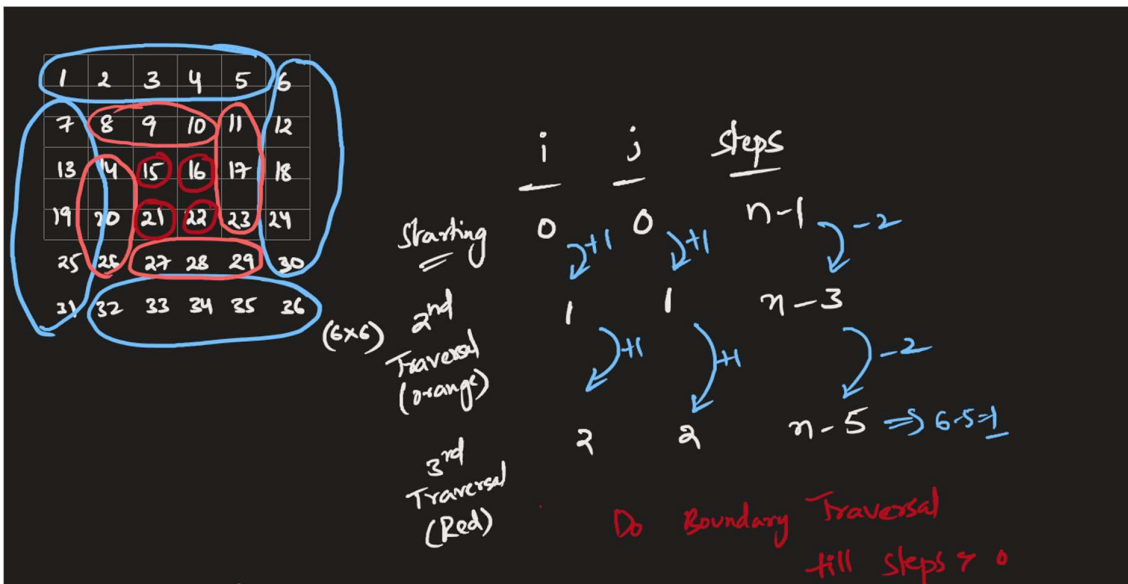 1 2 3 4 5 6
7 8 9 10 11 12
13 14 15 16 17 18
19 20 21 22 23 24
25 26 27 28 29 30
31 32 33 34 35 36
(6x6)
i j steps
Starting 0 0 n-1
+1 +1 -2
2nd Traversal (orange) 1 1 n-3
+1 +1 -2
3rd Traversal (Red) 2 2 n-5 => 6-5=1
Do Boundary Traversal
till steps > 0